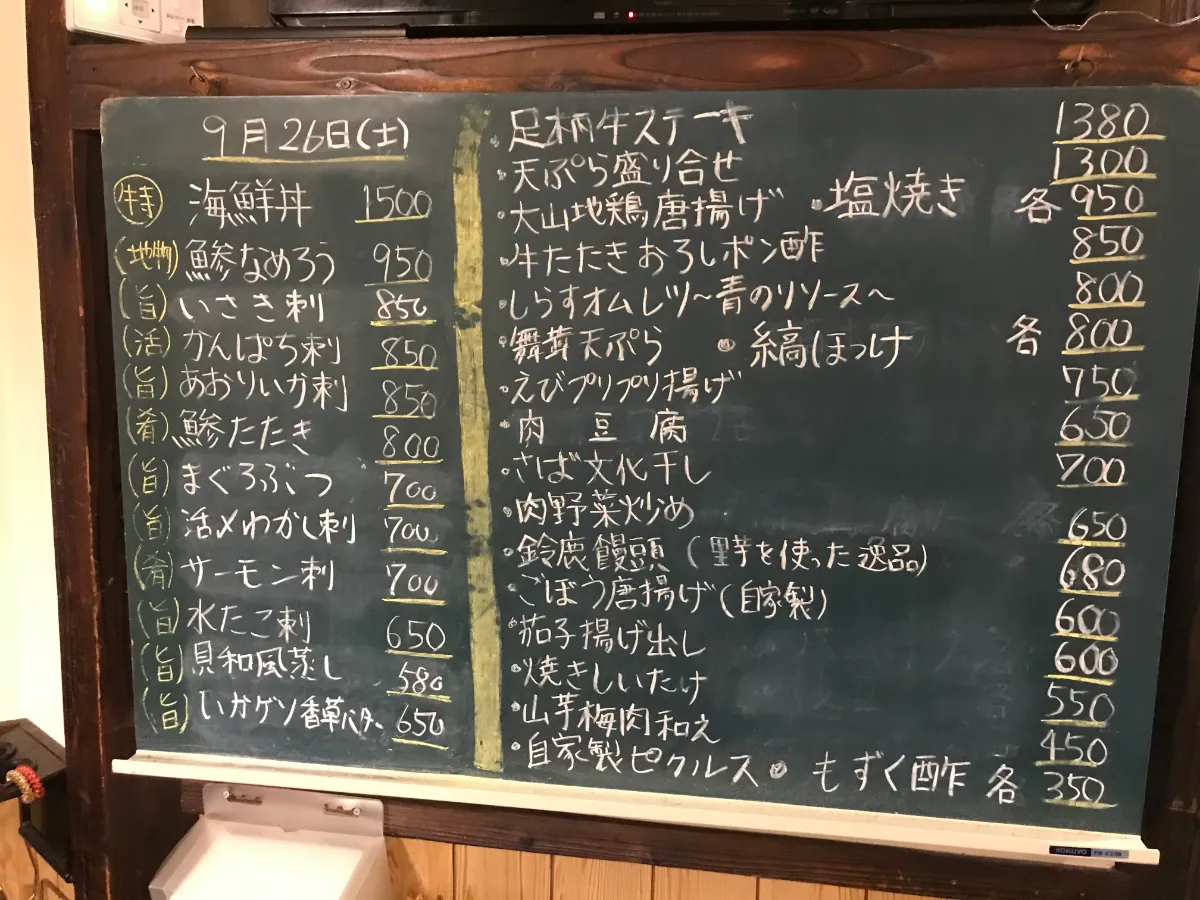 9月26日(土)
特 海鮮丼 1500
(地物) 鯵なめろう 950
(旨) いさき刺 850
(活) かんぱち刺 850
(旨) あおりいか刺 850
(肴) 鯵たたき 800
(旨) まぐろぶつ 700
(旨) 活〆わかし刺 700
(肴) サーモン刺 700
(旨) 水たこ刺 650
(旨) 貝和風蒸し 580
(旨) いかゲソ香草バター 650
・足柄牛ステーキ 1380
・天ぷら盛り合せ 1300
・大山地鶏唐揚げ ・塩焼き 各950
・牛たたきおろしポン酢 850
・しらすオムレツ〜青のりソース〜 800
・舞茸天ぷら ・縞ほっけ 各800
・えびプリプリ揚げ 750
・肉豆腐 650
・さば文化干し 700
・肉野菜炒め 650
・鈴鹿饅頭(里芋を使った逸品) 680
・ごぼう唐揚げ(自家製) 600
・茄子揚げ出し 600
・焼きしいたけ 550
・山芋梅肉和え 450
・自家製ピクルス ・もずく酢 各350
KOKUYO